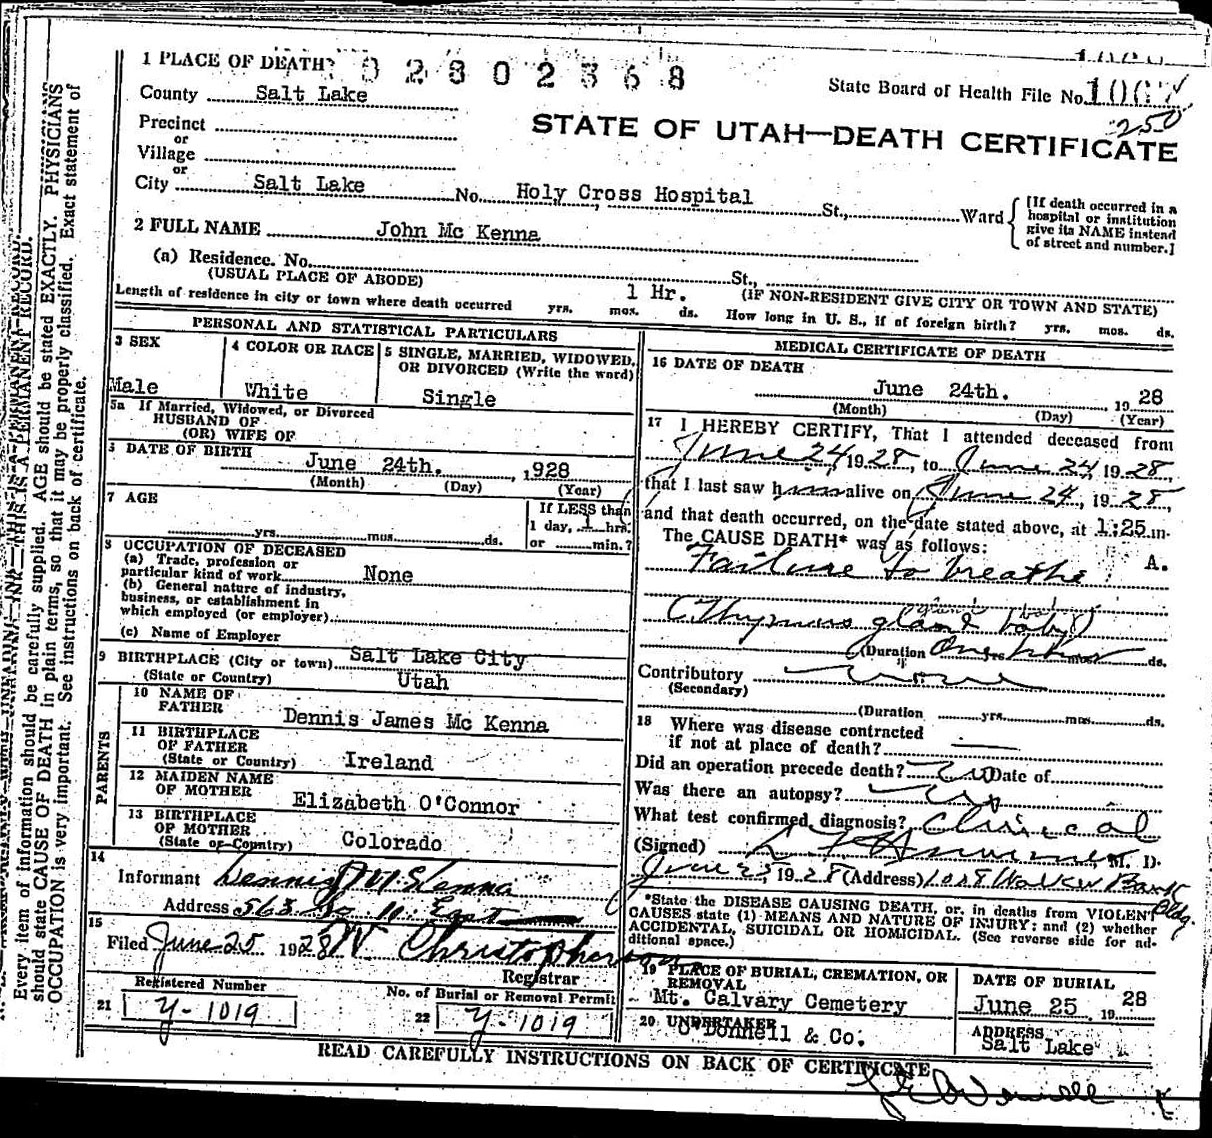 1 PLACE OF DEATH
02802368
State Board of Health File No. 1067
250
County Salt Lake
STATE OF UTAH—DEATH CERTIFICATE
Precinct
or
Village
or
City Salt Lake No. Holy Cross Hospital St., Ward
[If death occurred in a
hospital or institution
give its NAME instead
of street and number.]
2 FULL NAME John Mc Kenna
(a) Residence. No. St.,
(USUAL PLACE OF ABODE) (IF NON-RESIDENT GIVE CITY OR TOWN AND STATE)
Length of residence in city or town where death occurred yrs. mos. 1 Hr. ds. How long in U. S., if of foreign birth? yrs. mos. ds.
PERSONAL AND STATISTICAL PARTICULARS
3 SEX
Male
4 COLOR OR RACE
White
5 SINGLE, MARRIED, WIDOWED,
OR DIVORCED (Write the word)
Single
5a If Married, Widowed, or Divorced
HUSBAND OF
(OR) WIFE OF
6 DATE OF BIRTH June 24th. , 1928
(Month) (Day) (Year)
7 AGE
yrs. mos. ds.
If LESS than
1 day, 1 hrs.
or min.?
8 OCCUPATION OF DECEASED
(a) Trade, profession or
particular kind of work None
(b) General nature of industry,
business, or establishment in
which employed (or employer)
(c) Name of Employer
9 BIRTHPLACE (City or town) Salt Lake City
(State or Country) Utah
PARENTS
10 NAME OF
FATHER Dennis James Mc Kenna
11 BIRTHPLACE
OF FATHER
(State or Country) Ireland
12 MAIDEN NAME
OF MOTHER Elizabeth O'Connor
13 BIRTHPLACE
OF MOTHER
(State or Country) Colorado
14
Informant Dennis J McKenna
Address 563 So 11 East
15
Filed June 25 1928 W Christopherson
Registrar
Registered Number
21 Y-1019
No. of Burial or Removal Permit
22 Y-1019
MEDICAL CERTIFICATE OF DEATH
16 DATE OF DEATH
June 24th. 1928
(Month) (Day) (Year)
17 I HEREBY CERTIFY, That I attended deceased from
June 24, 1928, to June 24, 1928,
that I last saw him alive on June 24, 1928,
and that death occurred, on the date stated above, at 1:25 m.
The CAUSE DEATH* was as follows: A.
Failure to breathe
(Thymus gland baby)
(Duration One hour ds.
Contributory None
(Secondary)
(Duration yrs. mos. ds.
18 Where was disease contracted
if not at place of death? —
Did an operation precede death? No Date of
Was there an autopsy? No
What test confirmed diagnosis? Clinical
(Signed) M. D.
June 25, 1928 (Address) 1008 Walker Bank
Bldg.
*State the DISEASE CAUSING DEATH, or, in deaths from VIOLENT
CAUSES state (1) MEANS AND NATURE OF INJURY: and (2) whether
ACCIDENTAL, SUICIDAL OR HOMICIDAL. (See reverse side for ad-
ditional space.)
19 PLACE OF BURIAL, CREMATION, OR
REMOVAL
Mt. Calvary Cemetery
DATE OF BURIAL
June 25 1928
20 UNDERTAKER
O'Donnell & Co.
ADDRESS
Salt Lake
READ CAREFULLY INSTRUCTIONS ON BACK OF CERTIFICATE
Every item of information should be carefully supplied. AGE should be stated EXACTLY. PHYSICIANS
should state CAUSE OF DEATH in plain terms, so that it may be properly classified. Exact statement of
OCCUPATION is very important. See instructions on back of certificate.